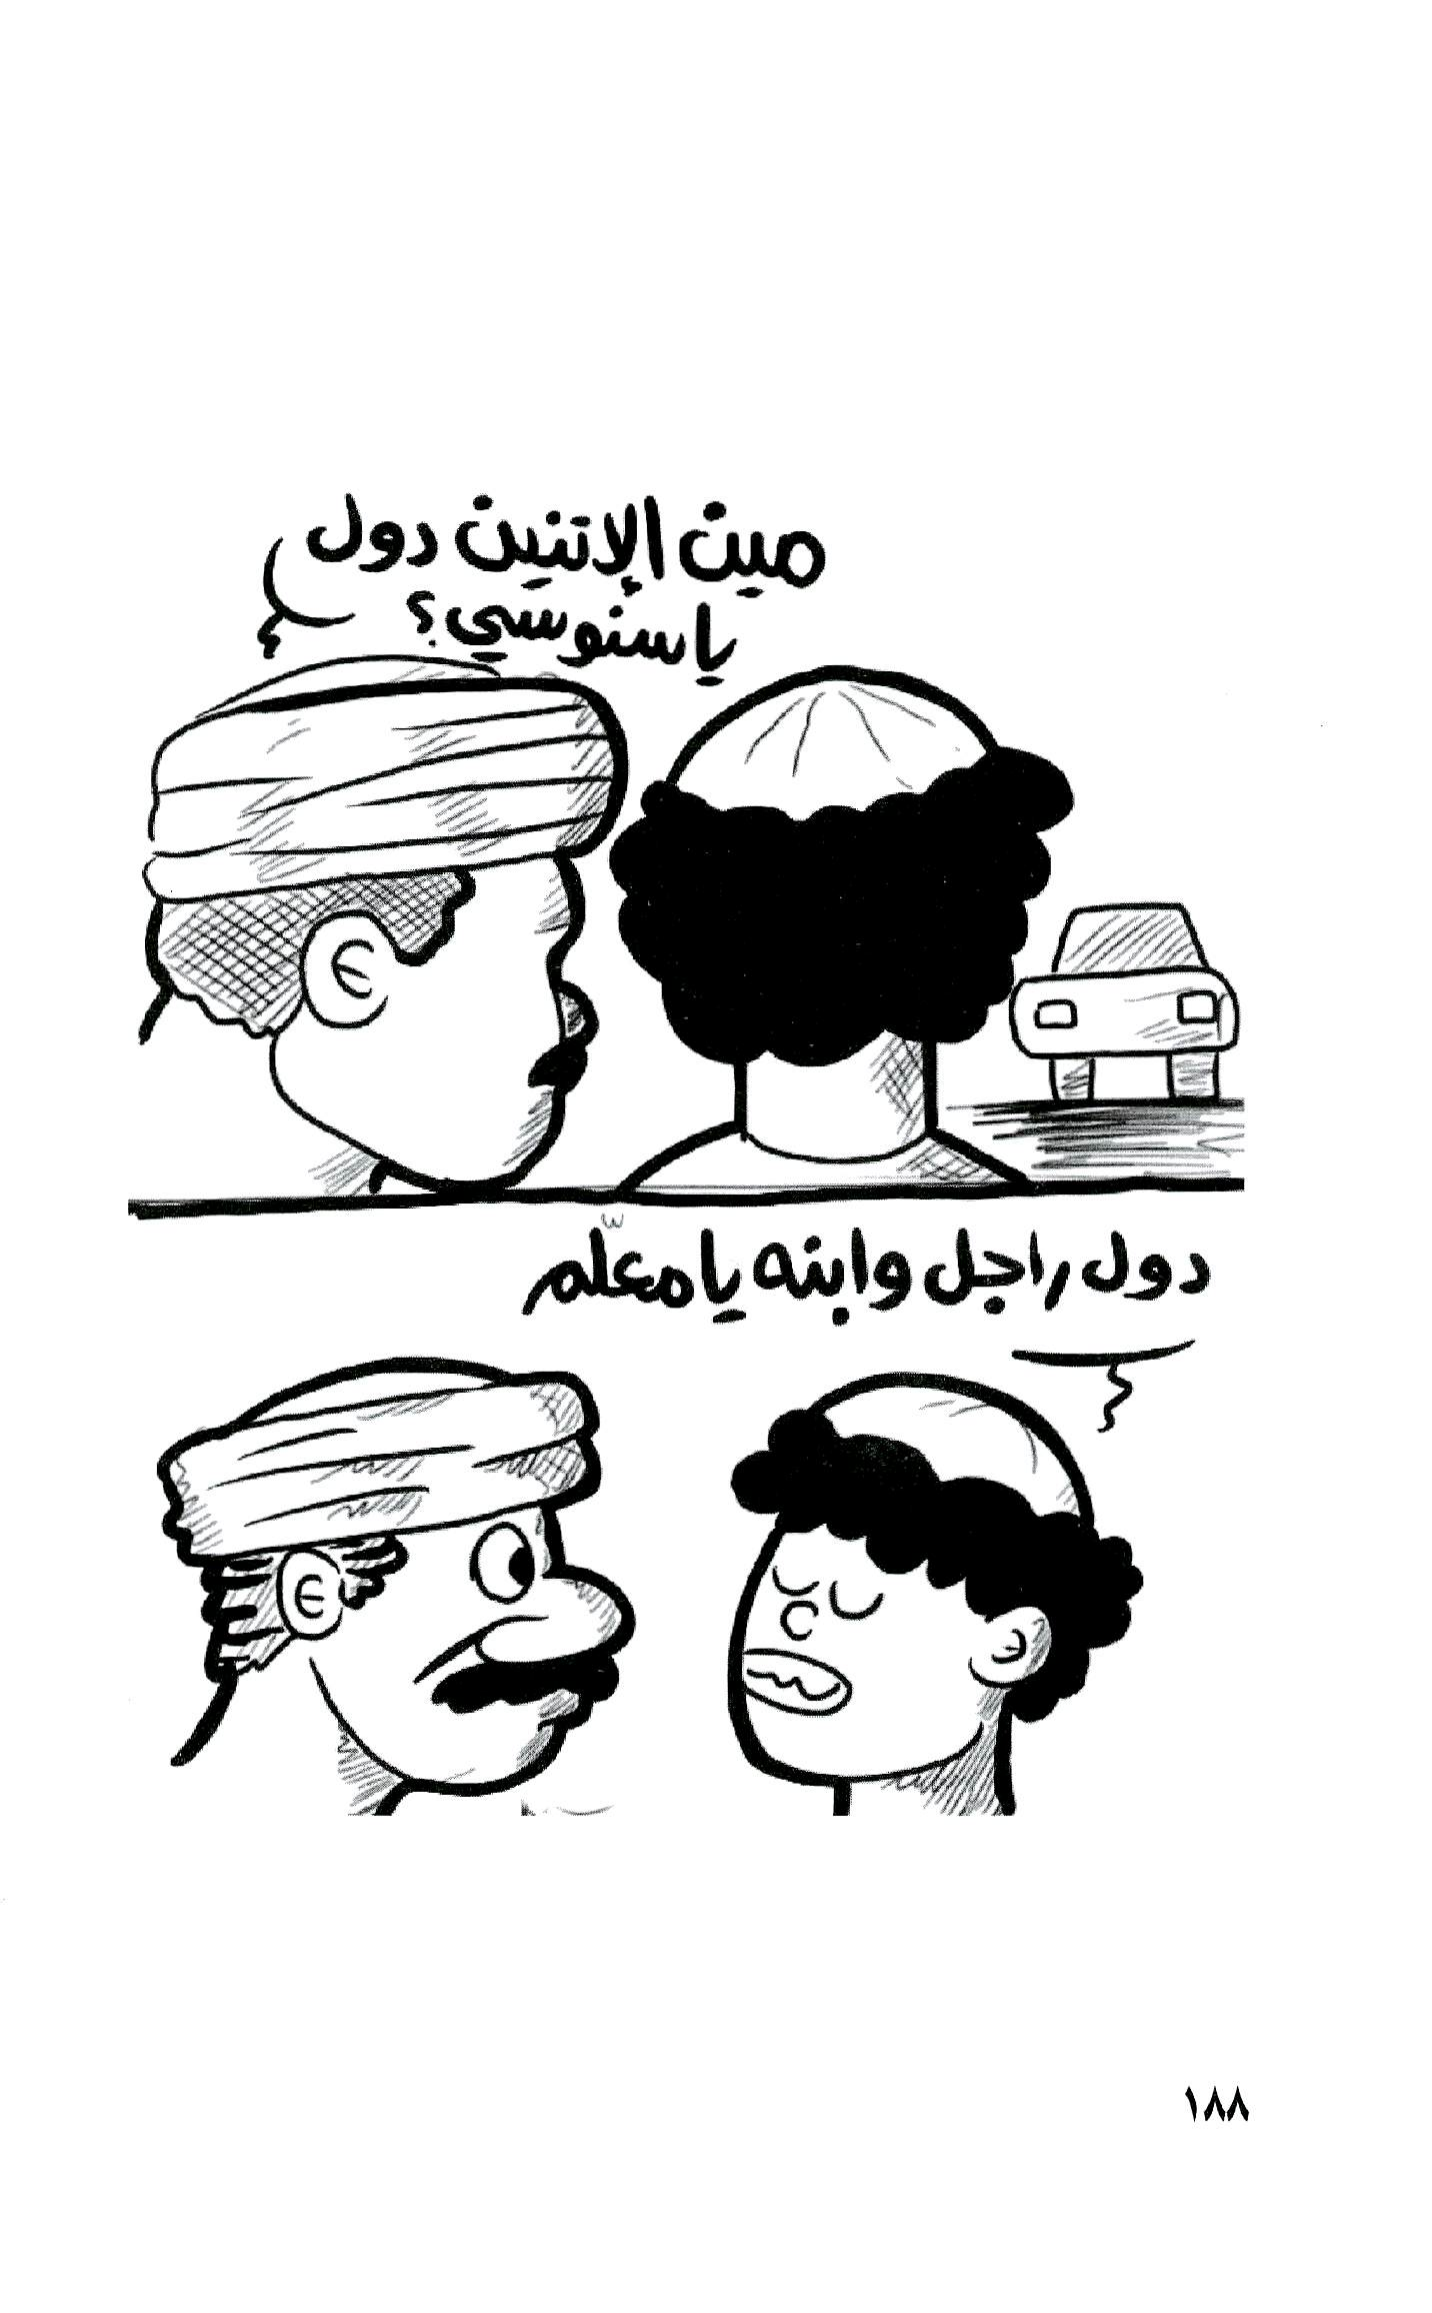 مين الإتنين دول
ياسنوسي؟
دول راجل وابنه يا معلّم
١٨٨